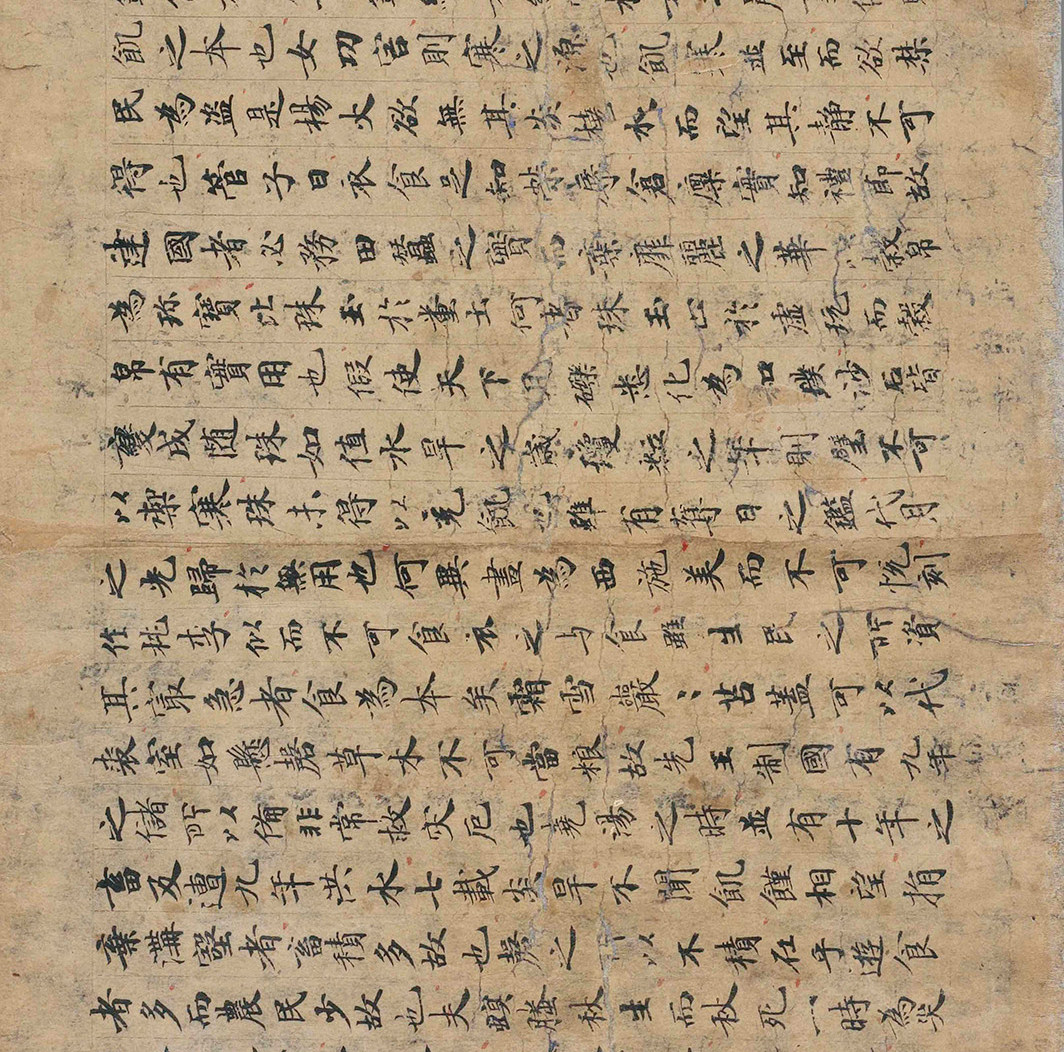 飢之本也女功害則寒之源也飢寒並至而欲禁
民為盜是揚火欲無其炎撓水而望其静不可
得也管子曰衣食足知榮辱倉廩實知禮節故
建國者必務田蠶之實而棄靡麗之華以榖帛
為珎寶比珠玉於糞土何者珠玉止於虛玩而榖
帛有實用也假使天下瓦礫悉化為和璞沙石皆
變成随珠如值水旱之歲瓊粒之年則璧不可
以禦寒珠未得以充飢也雖有奪日之鑑代月
之光歸於無用也何異畫為西施美而不可恱刻
作桃李似而不可食衣之与食雖生民之所資
其冣急者食為本矣霜雪巖〻苫蓋可以代
裘室如懸磬草木不可當粮故先王制國有九年
之儲所以備非常救灾厄也堯湯之時並有十年之
畜及遭九年洪水七載炎旱不聞飢饉相望捐
棄溝壑者畜積多故也磬之以不積在乎遊食
者多而農民少故也夫螟螣秋生而秋死一時為灾